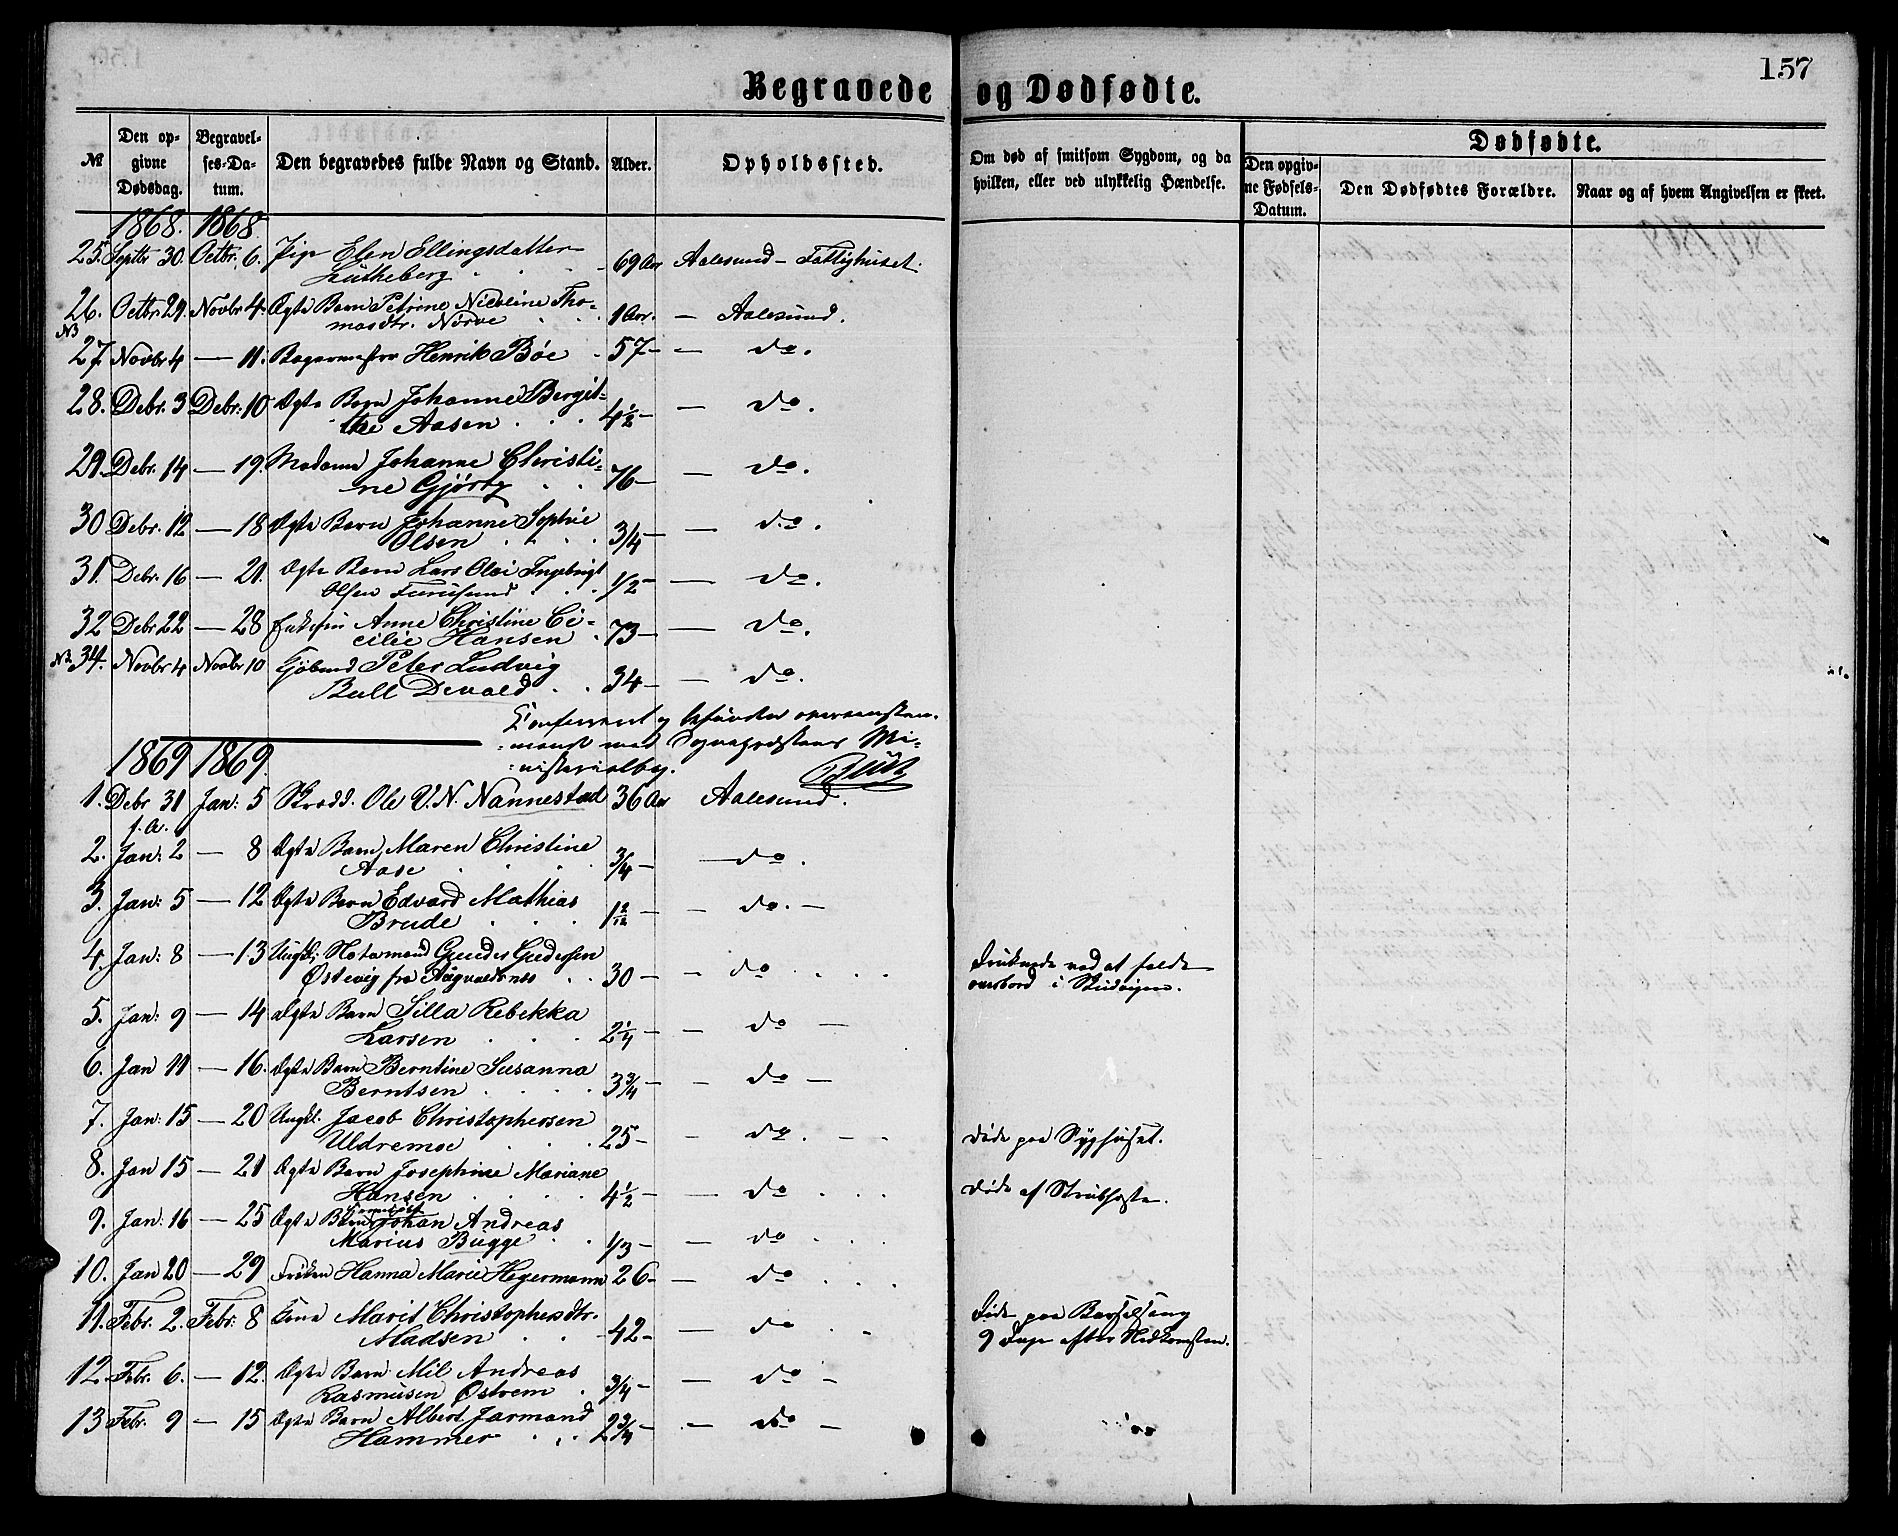 157
Begravede og Dødfødte.
Nr.
Den opgivne Dødsdag.
Begravelses-Datum.
Den begravedes fulde Navn og Stand.
Alder.
Opholdssted.
Om død af smitsom Sygdom, og da hvilken, eller ved ulykkelig Hændelse.
Dødfødte.
Den opgivne Fødsels-Datum.
Den Dødfødtes Forældre.
Naar og af hvem Angivelsen er skeet.
1868. 1868.
25. Septbr 30. Octbr. 6. Pige Elen Ellingsdatter 69 Aar Aalesund – Fattighuset.
Lütheberg
26. Octbr. 29. Novbr 4. Ægte Barn Petrine Nicoline Tho- 1 Aar. — Aalesund.
masdtr. Nörve
NB
27. Novbr 4 — 11. Bagermester Henrik Böe 57 — — do.
28. Debr. 3 Debr: 10 Ægte Barn Johanne Bergit- 4½ — — do.
the Aasen
29. Debr. 14 — 19. Madame Johanne Christi- 76 — — do.
ne Gjørtz
30 Debr. 12 — 18 Ægte Barn Johanne Sophie 3/4 — — do.
Olsen
31. Debr. 16 — 21. Ægte Barn Lars Olai Ingebrigt 1/2 — — do.
Olsen Furusund
32 Debr 22 — 28 Enkefru Anne Christine Ce- 73 — — do.
cilie Hansen
NB. 34. Novbr 4 Novbr 10 Peter Ludvig 34 — — do.
Bull Devold
Confereret og befundet overensstem-
mende med Sogneprestens Mi-
nisterialbog.
1869 1869.
1. Debr 31 Jan: 5 Skrædd. Ole V. N. Nannestad 36 Aar Aalesund.
f. A.
2. Jan: 2 — 8 Ægte Barn Maren Christine 3/4 — — do.
Aase
3. Jan: 5 — 12 Ægte Barn Edvard Mathias 1 2/12 — — do. —
Brude
4. Jan: 8 — 13 Ungk. Notemand Gunder Gudersen 30 — — do Druknede ved at falde
Østevig fra overbord i Skudvigen.
5. Jan: 9 — 14 Ægte Barn Silla Rebekka 2¼ — — do —
Larsen
6. Jan 11 — 16. Ægte Barn Berntine Susanna 3¾ — — do —
Berntsen
7. Jan: 15 — 20 Ungkl. Jacob Christophersen 25 — — do. — døde paa Syghuset.
Uldremoe
8. Jan 15 — 21 Ægte Barn Josephine Mariane 4½ — — do døde af Strubehoste.
Hansen
9. Jan: 16 — 25 Ægte Barn Johan Andreas 1/3 — — do
Marius Bugge
10. Jan 20 — 29 Frøken Hanna Marie Hegermann 26 — — do
11. Febr. 2. Febr: 8 Kone Marit Christophersdtr. 42 — — do Døde paa Barselseng
Madsen 9 Dage efter Nedkomsten.
12. Febr. 6. — 12. Ægte Barn Mil Andreas 3/4 — — do —
Rasmusen Østrem
13 Febr. 9 — 15 Ægte Barn Albert Jarmand 2¾ — — do —
Hammer